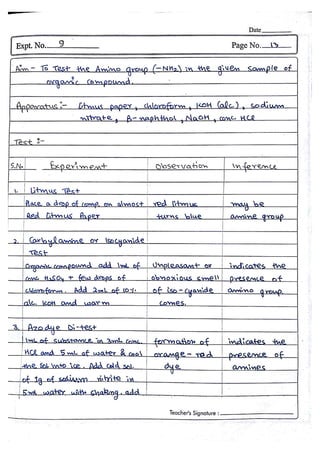 Date
Expt. No. 9
Page No. 13
Aim - To Test the Amino group (-NH2) in the given sample of
organic compound.
Apparatus :- litmus paper, chloroform, KOH (alc), sodium
nitrate, β-naphthol, NaOH, conc HCl
Test :-
S.No. Experiment Observation Inference
1. Litmus Test
Place a drop of comp. on almost red litmus may be
Red litmus Paper turns blue amine group
2. Carbylamine or Isocyanide
Test
Organic compound add 1mL of Unpleasant or indicates the
conc H2SO4 + few drops of obnoxious smell presence of
chloroform. Add 2mL of 10% of iso-cyanide amino group.
alc. KOH and warm comes.
3. Azodye Di-test
1mL of substance in 3mL conc. formation of indicates the
HCl and 5mL of water & cool orange-red presence of
the sol into ice. Add cold sol. dye amines
of 1g of sodium nitrite in
5mL water with shaking. add
Teacher's Signature :